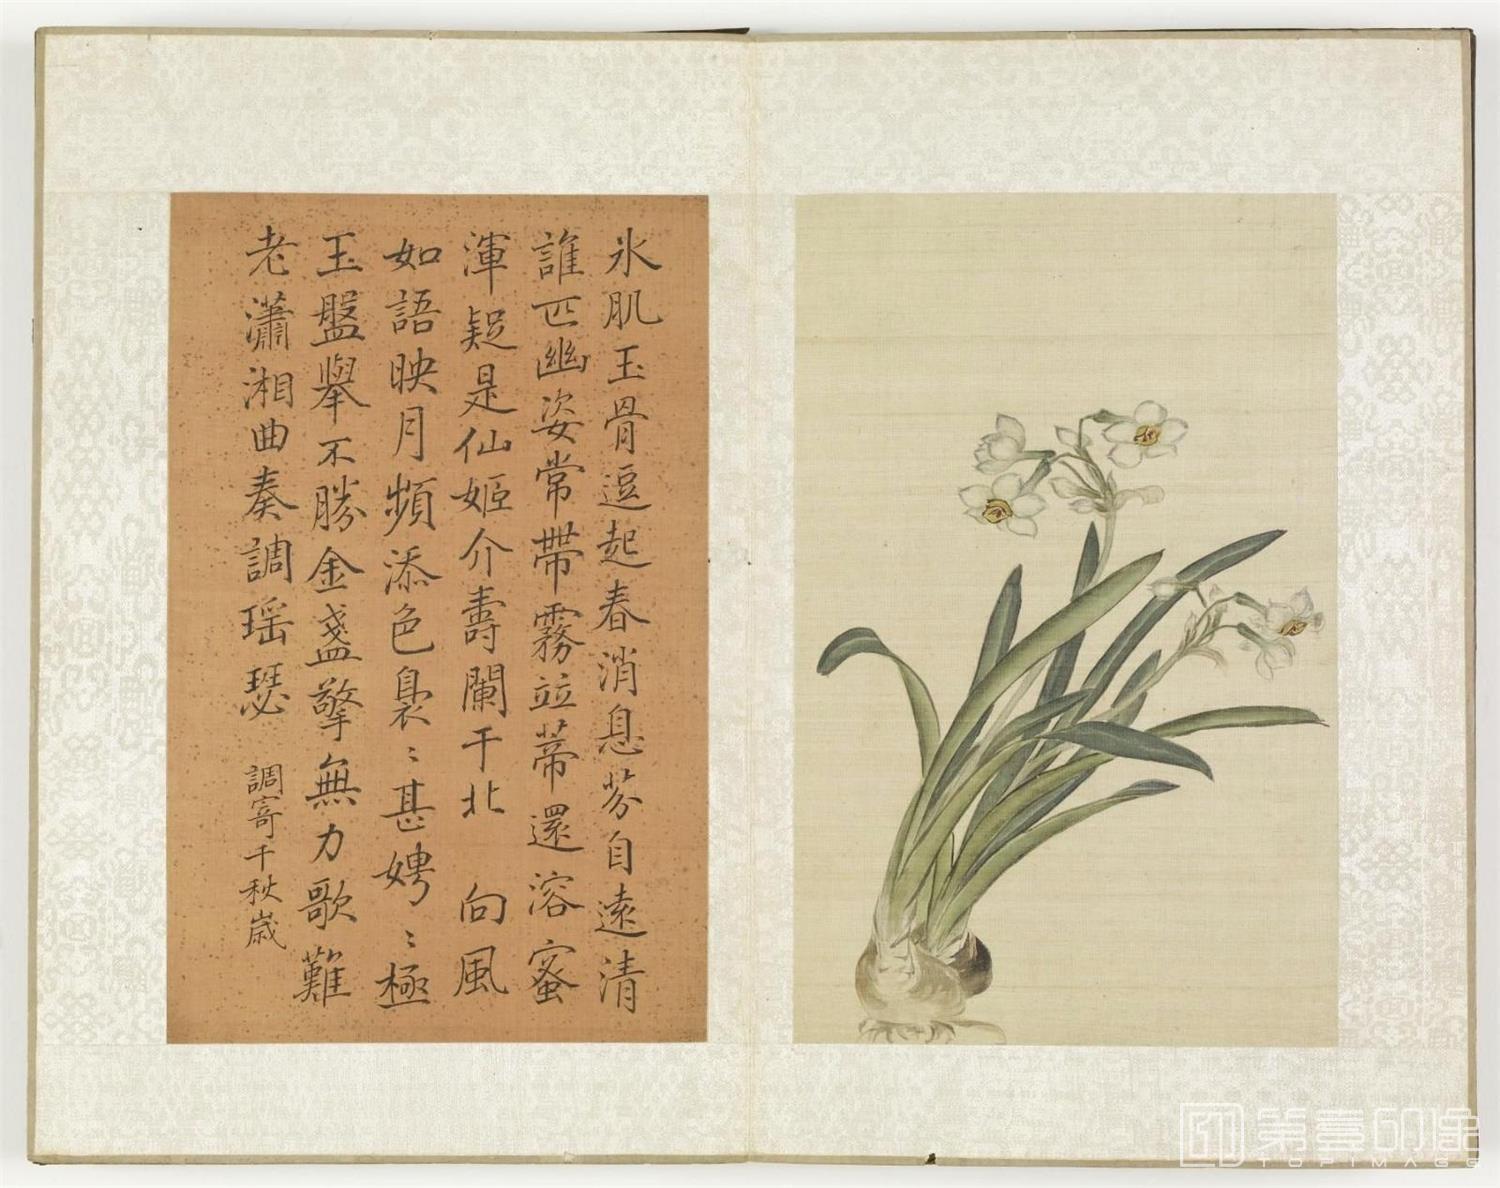 氷肌玉骨逗起春消息芬自遠清
誰匹幽姿常帶霧竝蒂還溶蜜
渾疑是仙姬介壽闌干北　向風
如語映月頻添色裊〻甚娉〻極
玉盤擧不勝金盞擎無力歌難
老瀟湘曲奏調瑶瑟　調寄千秋歲
第壹印象
TOPIMAGE